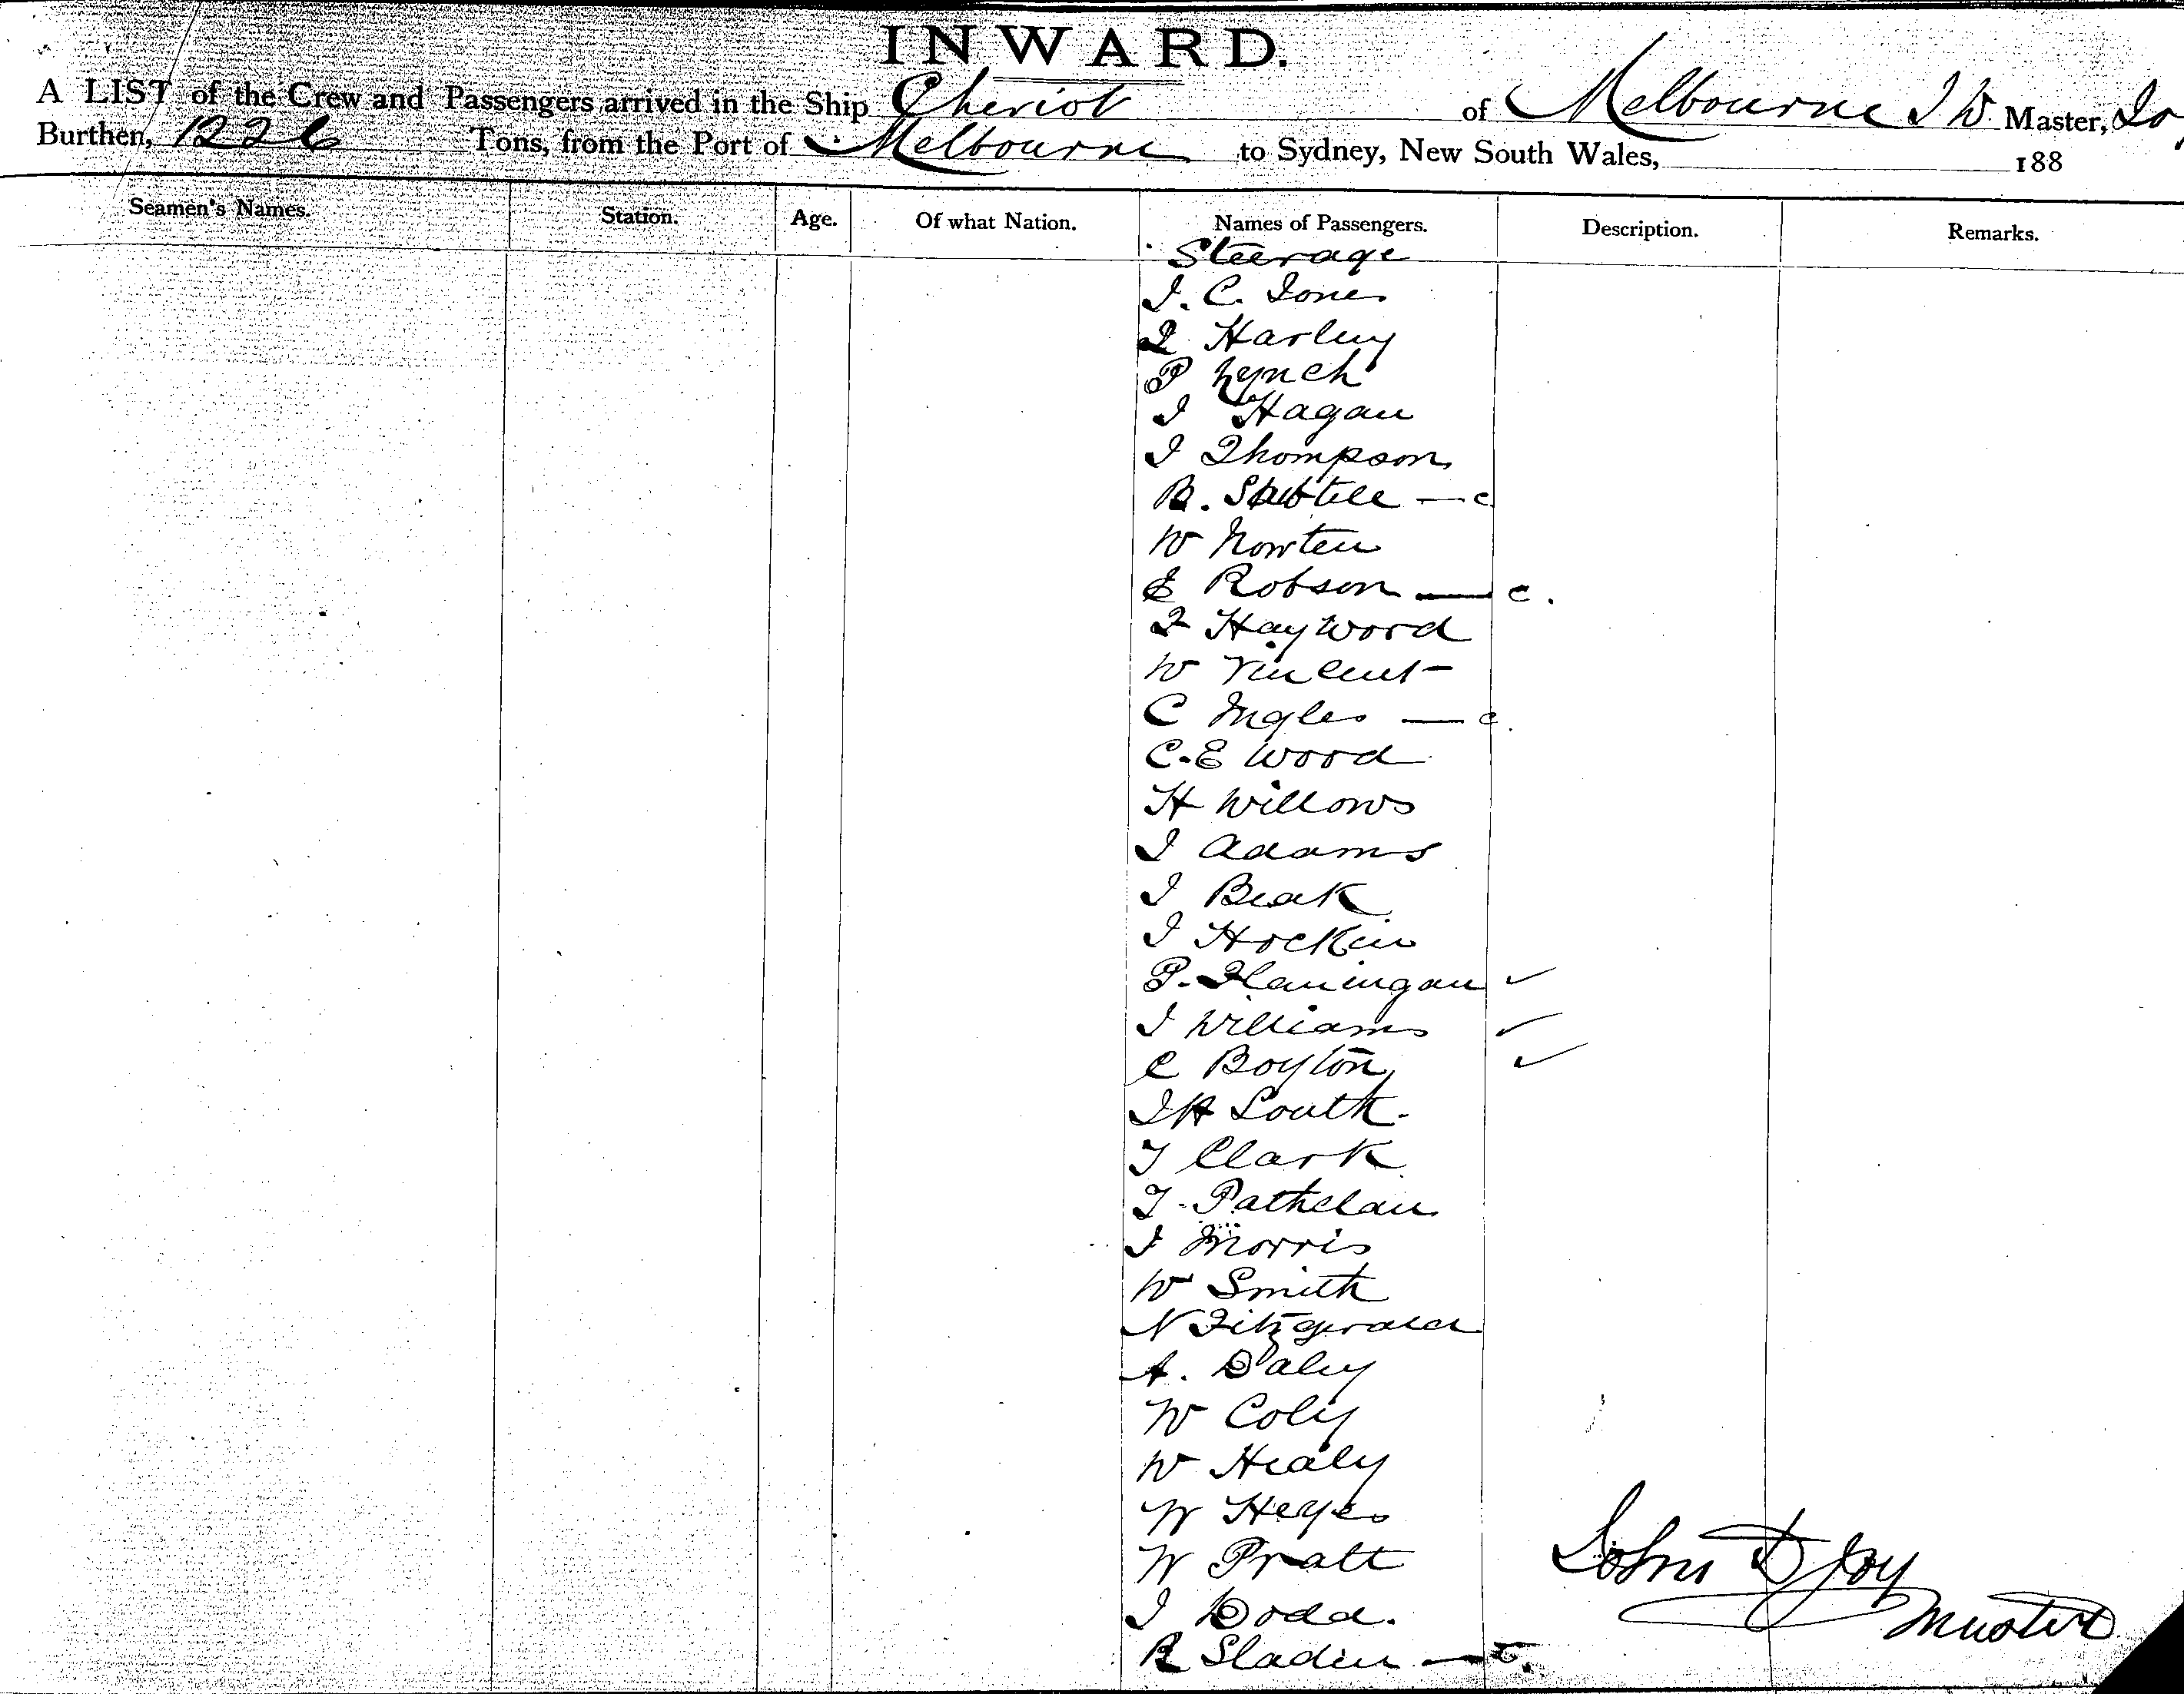 INWARD.
A LIST of the Crew and Passengers arrived in the Ship Cheviot of Melbourne I W Master,
Burthen, 1226 Tons, from the Port of Melbourne to Sydney, New South Wales, 188
Seamen's Names. Station. Age. Of what Nation. Names of Passengers. Description. Remarks.
Steerage
J. C. Jones
Harley
P Lynch
J Hagan
J Thompson
B. — c
W Nowten
E Robson — c.
F Hayword
W Vincent
C Ingles — c.
C. E Wood
H Willows
J Adams
J Beak
J Hockin
P. Flaningan ✓
J Williams ✓
C Boyton ✓
J H South.
T Clark
T. Pathelan
J Morris
W Smith
N Fitzgerald
A. Daley
W Coly
W Healy
W Heyes
W Pratt
J Dodd.
R Sladin — c.
John D Joy
Master